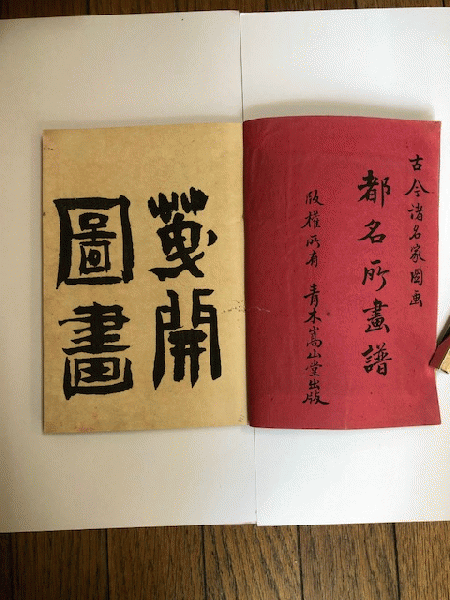 古今諸名家圖画
都名所畫譜
版權所有 青木嵩山堂出版
開
圖畫